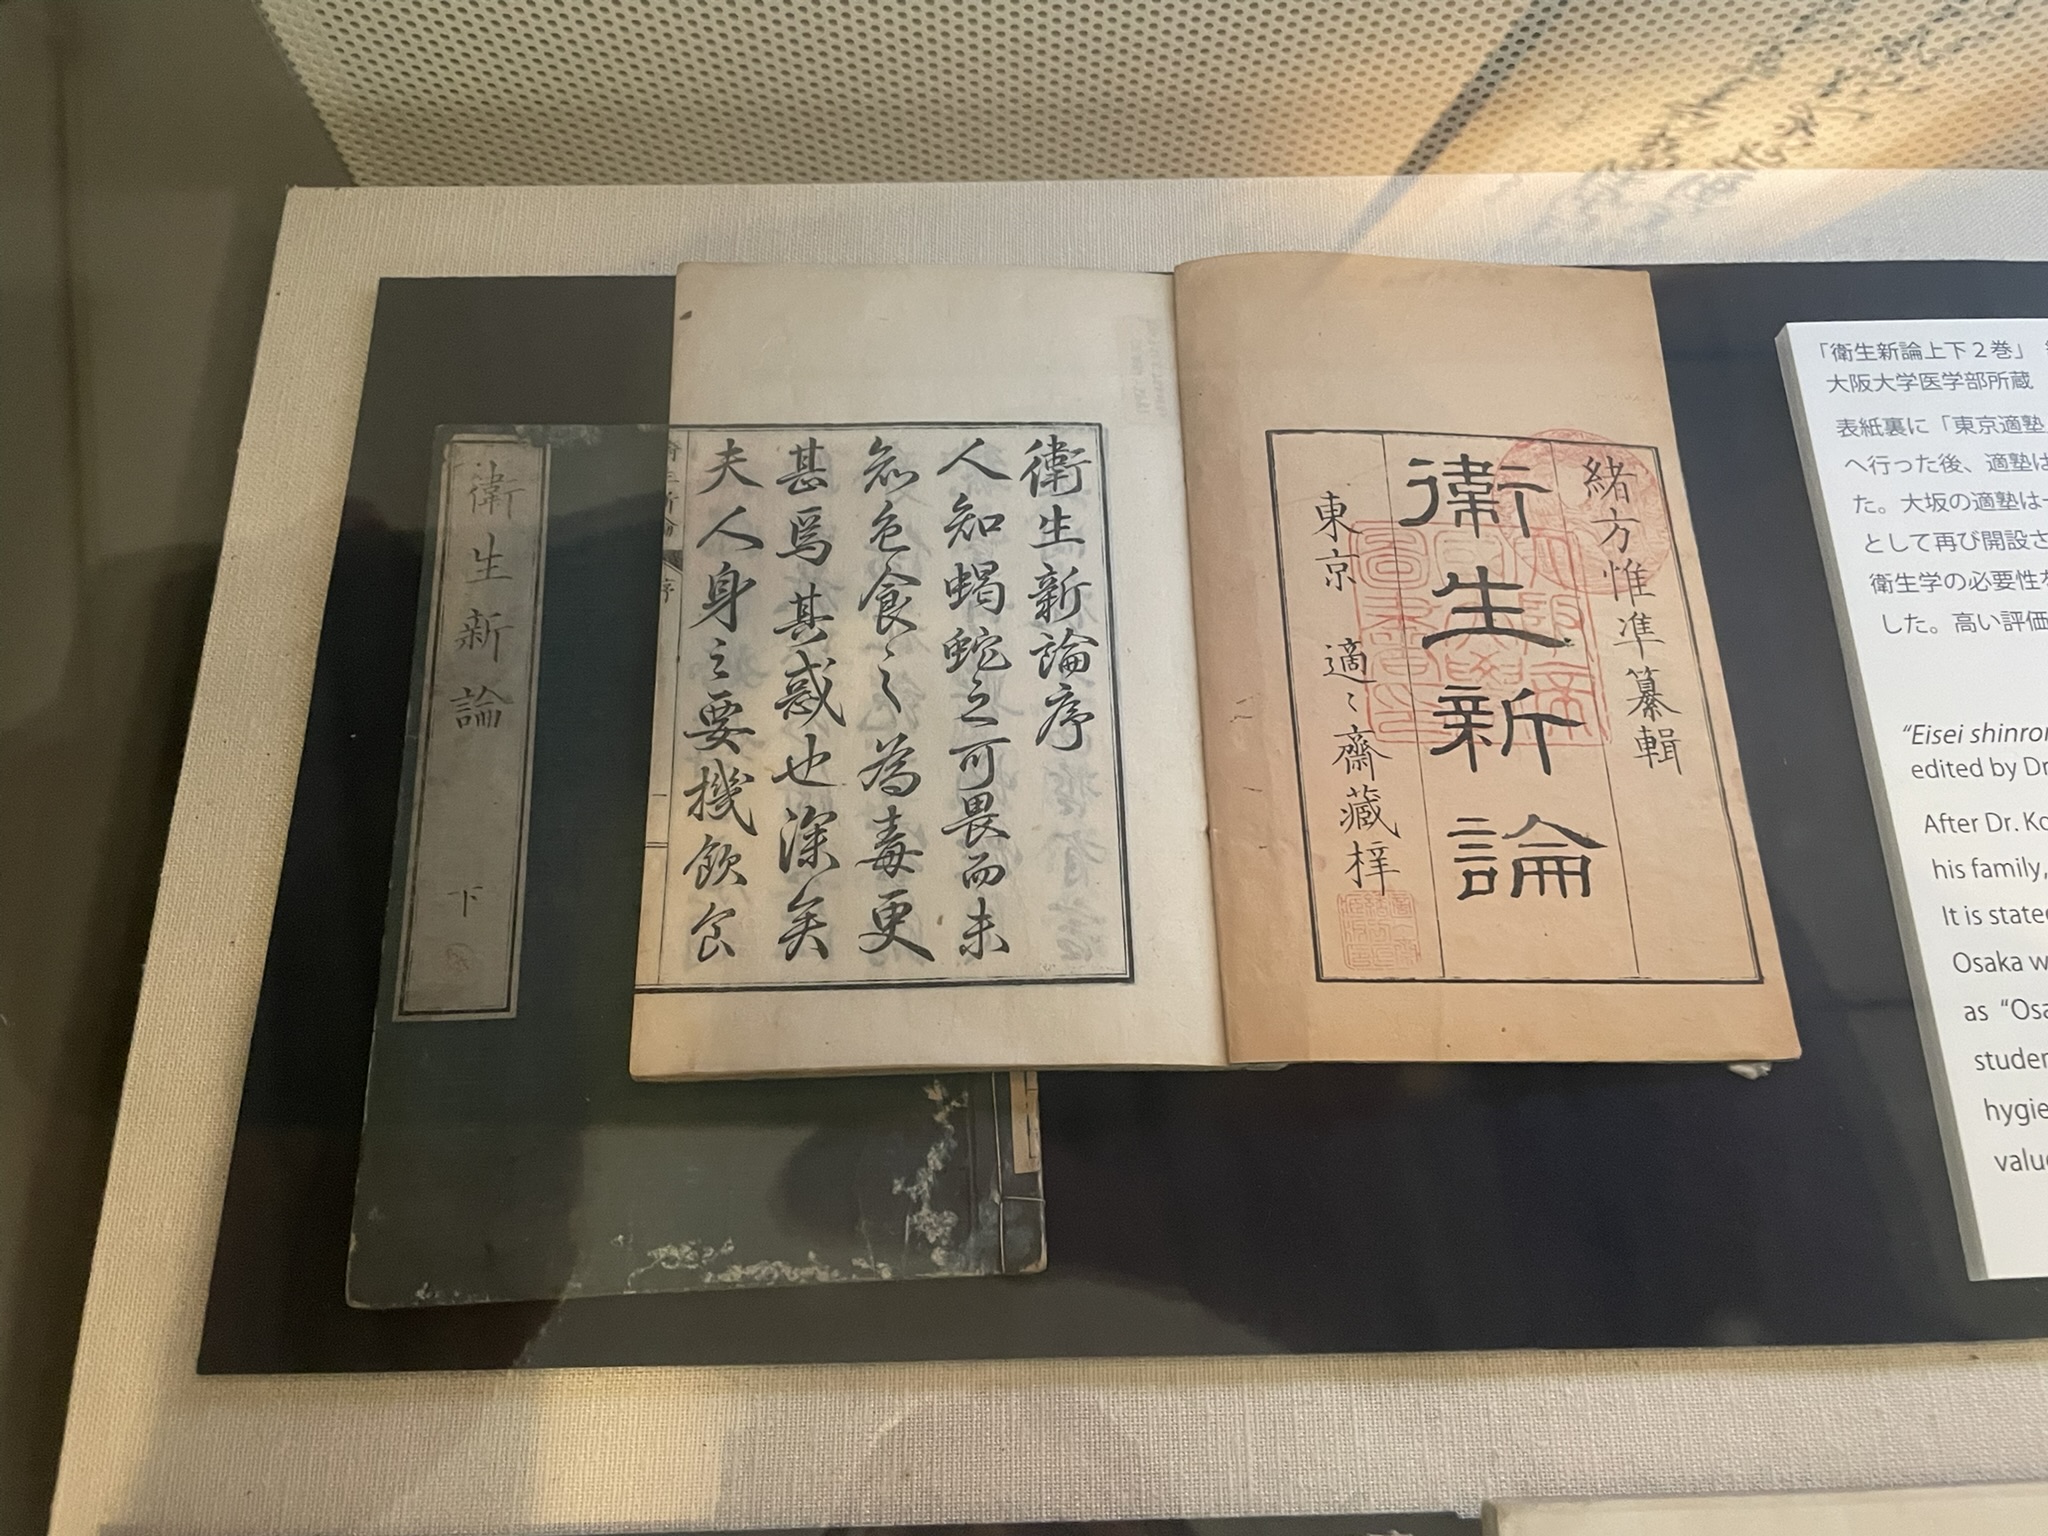 緒方惟準纂輯
衛生新論
東京 適〻齋藏梓
衛生新論序
人知蝎蛇之可畏而未
知色食〻之為毒更
甚焉其惑也深矣
夫人身之要機飲食
衛生新論 下
「衛生新論上下2巻」
大阪大学医学部所蔵
表紙裏に「東京適塾
へ行った後、適塾は
た。大坂の適塾は
として再び開設さ
衛生学の必要性を
した。高い評価
“Eisei shinron
edited by Dr
After Dr. Ko
his family,
It is state
Osaka w
as “Osa
studen
hygie
value